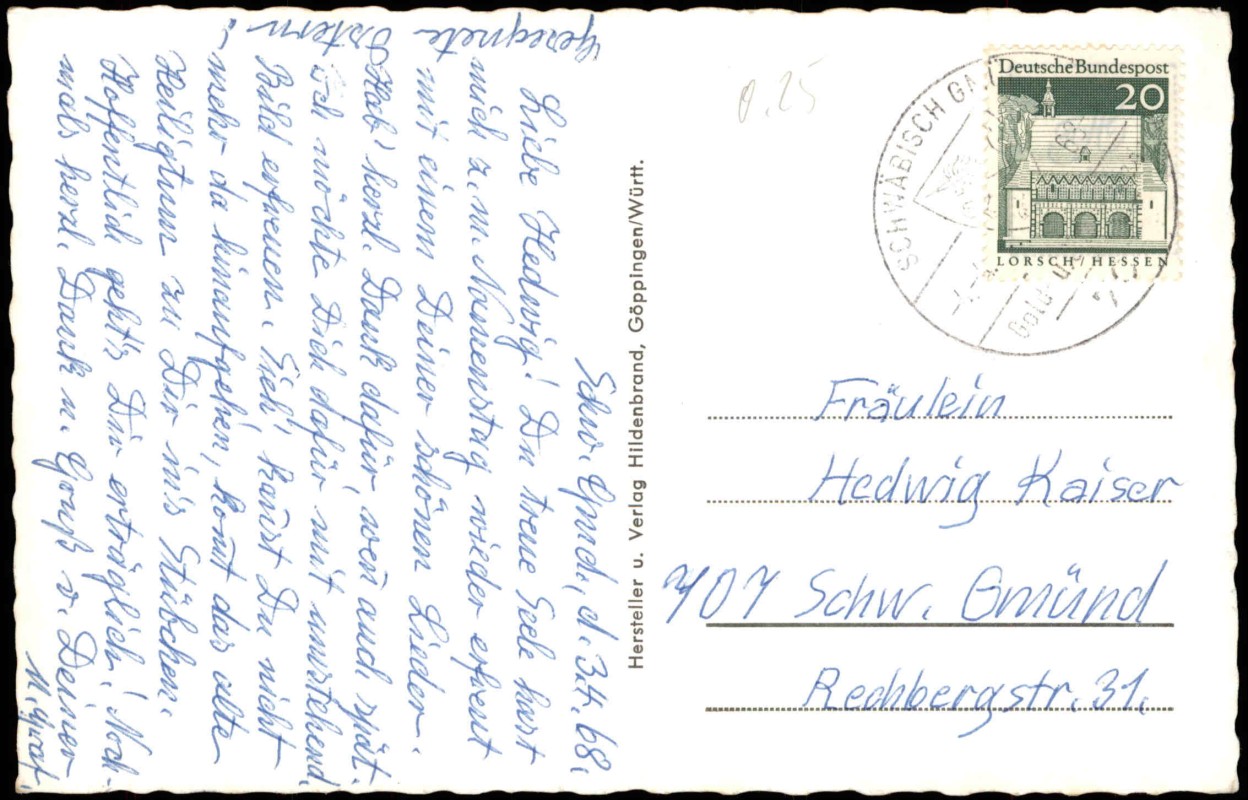 Schw. Gmd., d. 3.4.68.
Liebe Hedwig! Du treue Seele hast
mich z. m. Namenstag wieder erfreut
mit einem Deiner schönen Lieder.
Hab' herzl. Dank dafür, wen̄ auch spät.
Ich möchte Dich dafür mit umstehend.
Bild erfreuen. Sieh', kan̄st Du nicht
mehr da hinaufgehen, kom̄t das alte
Heiligtum zu Dir ins Stübchen.
Hoffentlich geht's Dir erträglich! Noch-
mals herzl. Dank u. Gruß v. Deiner
M.
Gesegnete
Ostern
Hersteller u. Verlag Hildenbrand, Göppingen/Württ.
0.25
SCHWÄBISCH
Gold- u.
Deutsche Bundespost
20
LORSCH/HESSEN
Fräulein
Hedwig Kaiser
707 Schw. Gmünd
Rechbergstr. 31.